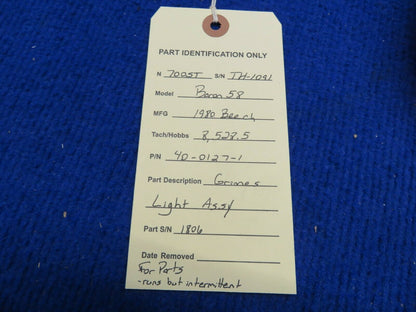 PART IDENTIFICATION ONLY
N 7005T S/N TH-1091
Model Baron 58
MFG 1980 Beech
Tach/Hobbs 8,528.5
P/N 40-0127-1
Part Description Grimes
Light Assy
Part S/N 1806
Date Removed
For Parts
-runs but intermittent